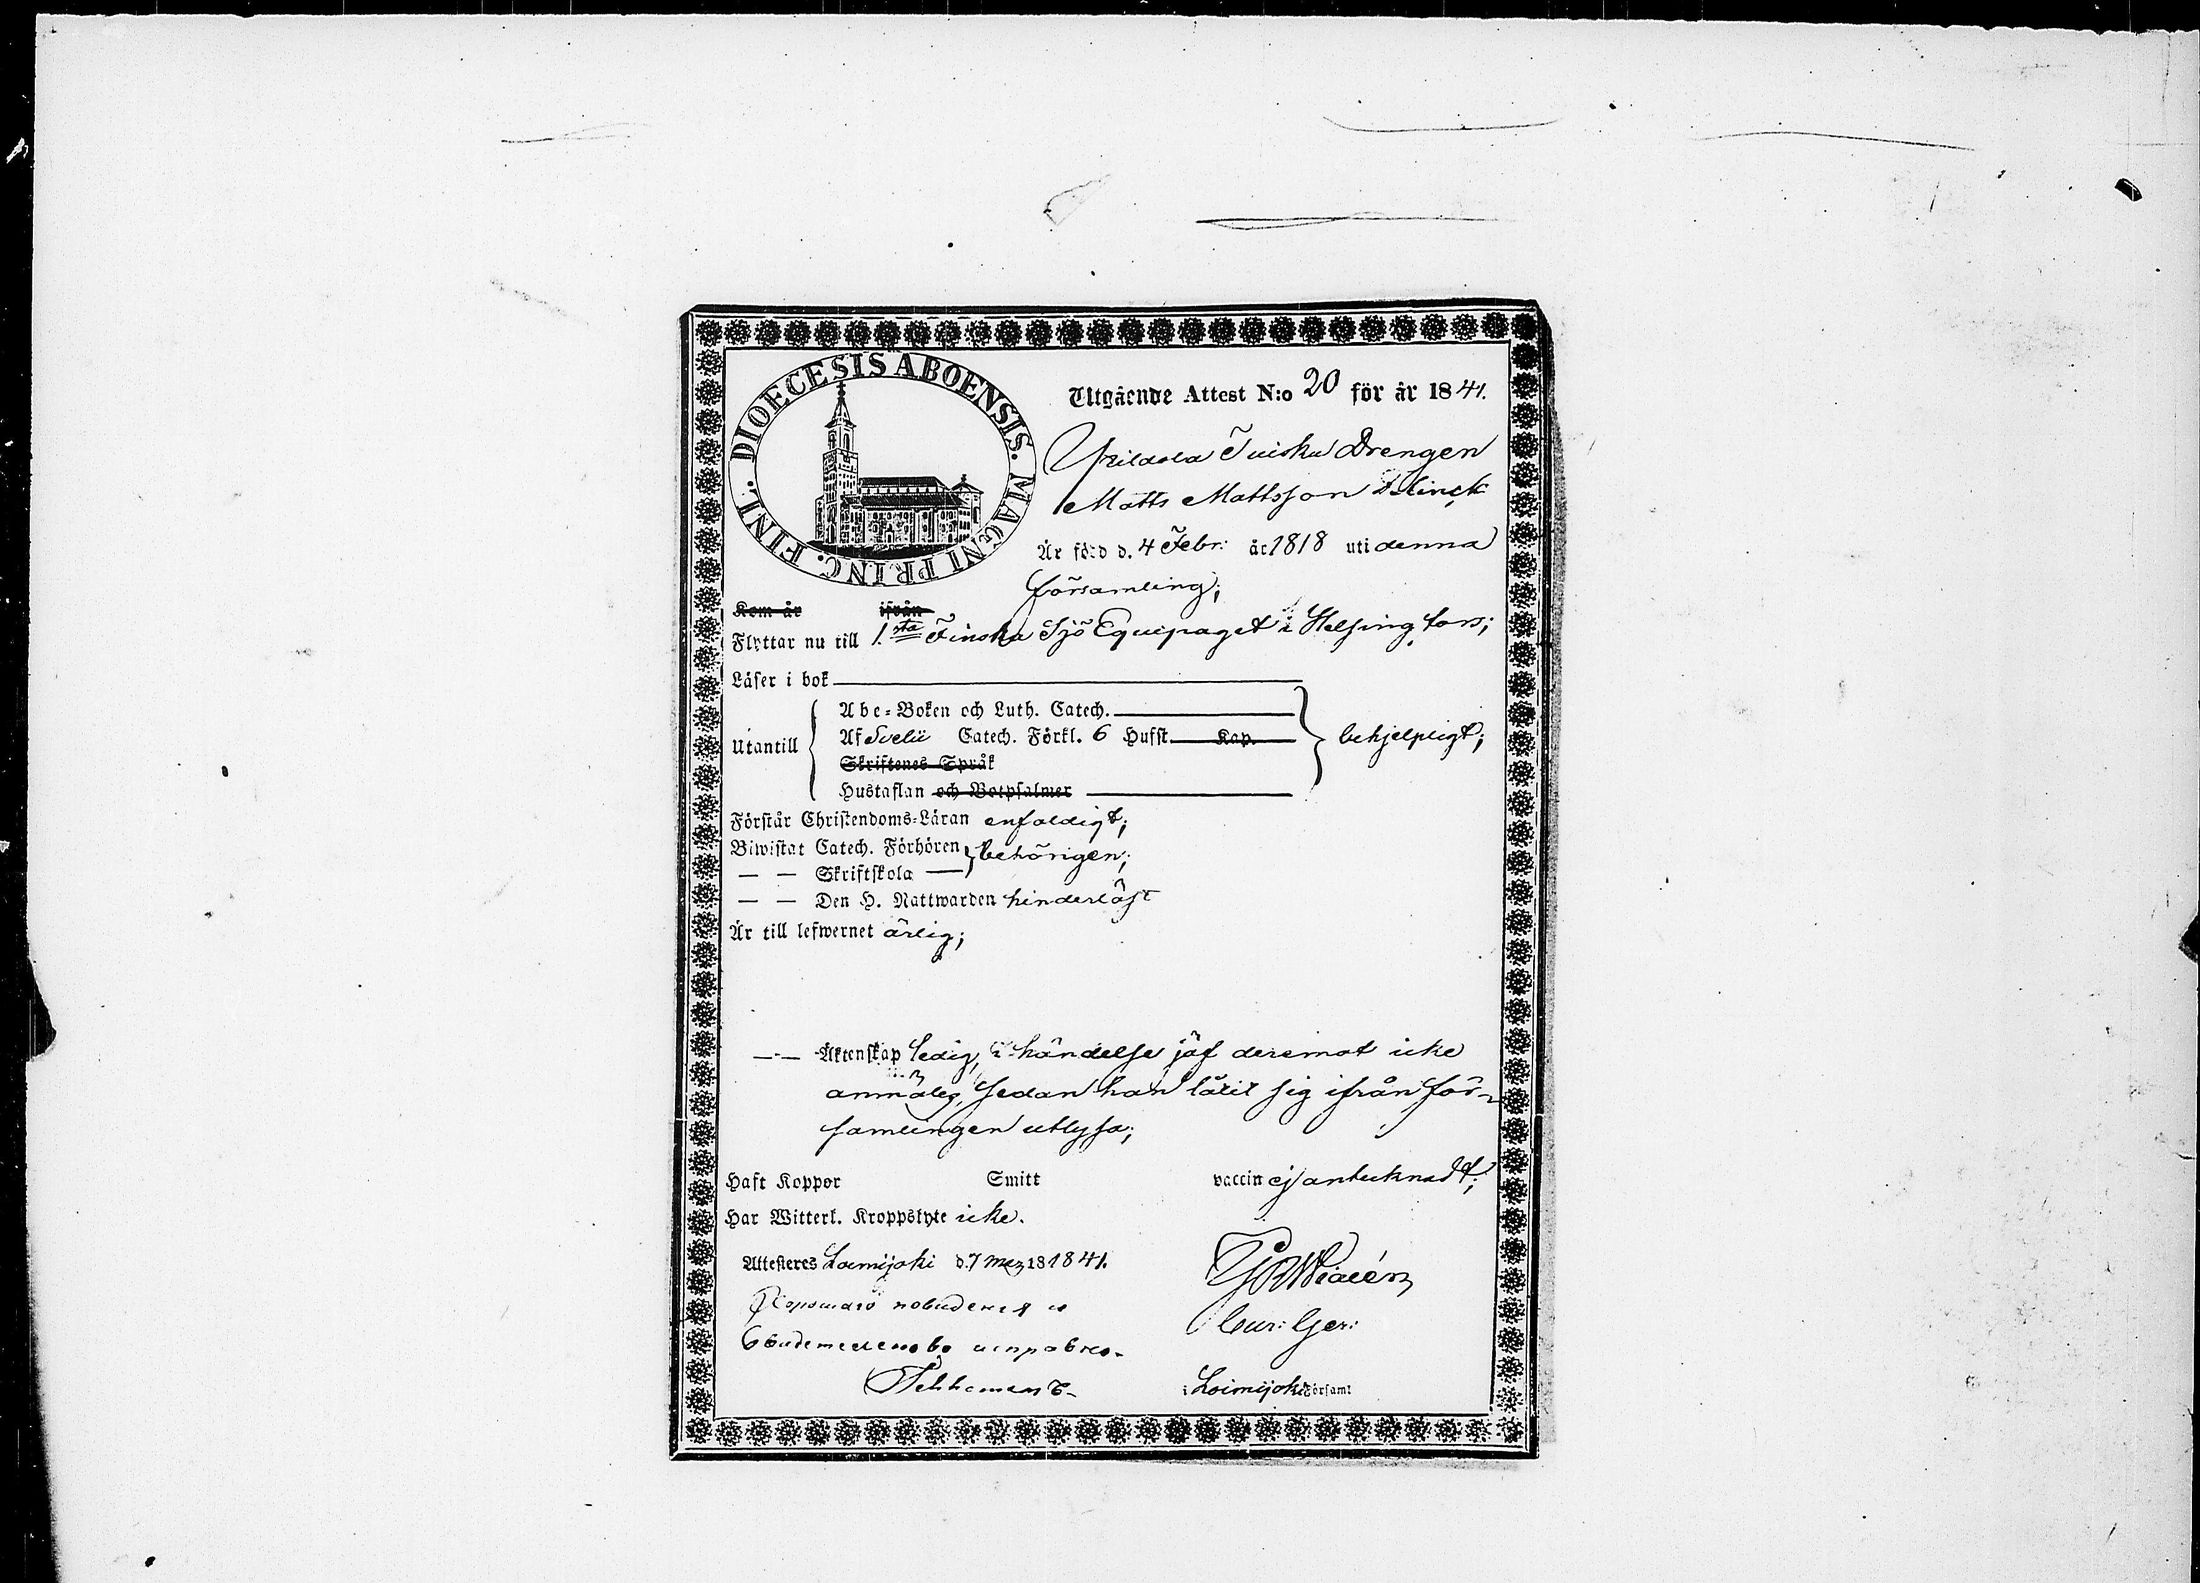 DIOECESIS ABOENSIS. MAGNI PRINC. FINL.
Utgående Attest N:o 20 för år 1841.
Drengen
Matts Mattsson
Är född d. 4 Febr: år 1818 uti denna
församling;
Kom år ifrån
Flyttar nu till 1.sta Finska Sjö Equipaget i Helsingfors;
Läser i bok
Utantill
Abc-Boken och Luth. Catech.
Af Svebelii Catech. Förkl. 6 Hufst. Kap.
Skriftenes Språk
Hustaflan och Botpsalmer
behjelpligt;
Förstår Christendoms-Läran enfaldigt;
Biwistat Catech. Förhören behörigen;
— — Skriftskola
— — Den H. Nattwarden hinderlöst
Är till lefwernet ärlig;
—"— Äktenskap ledig, i händelse jäf deremot icke
anmäles, sedan han låtit sig ifrån för-
samlingen utlysa;
Haft Koppor Smitt vaccin ej antecknadt;
Har Witterl. Kroppslyte icke.
Attesteres Loimijoki d. 7 Maz 18 1841.
Хорошаго поведения и
Свидетельство исправно.
Cur: Ger:
i Loimijoki Församl